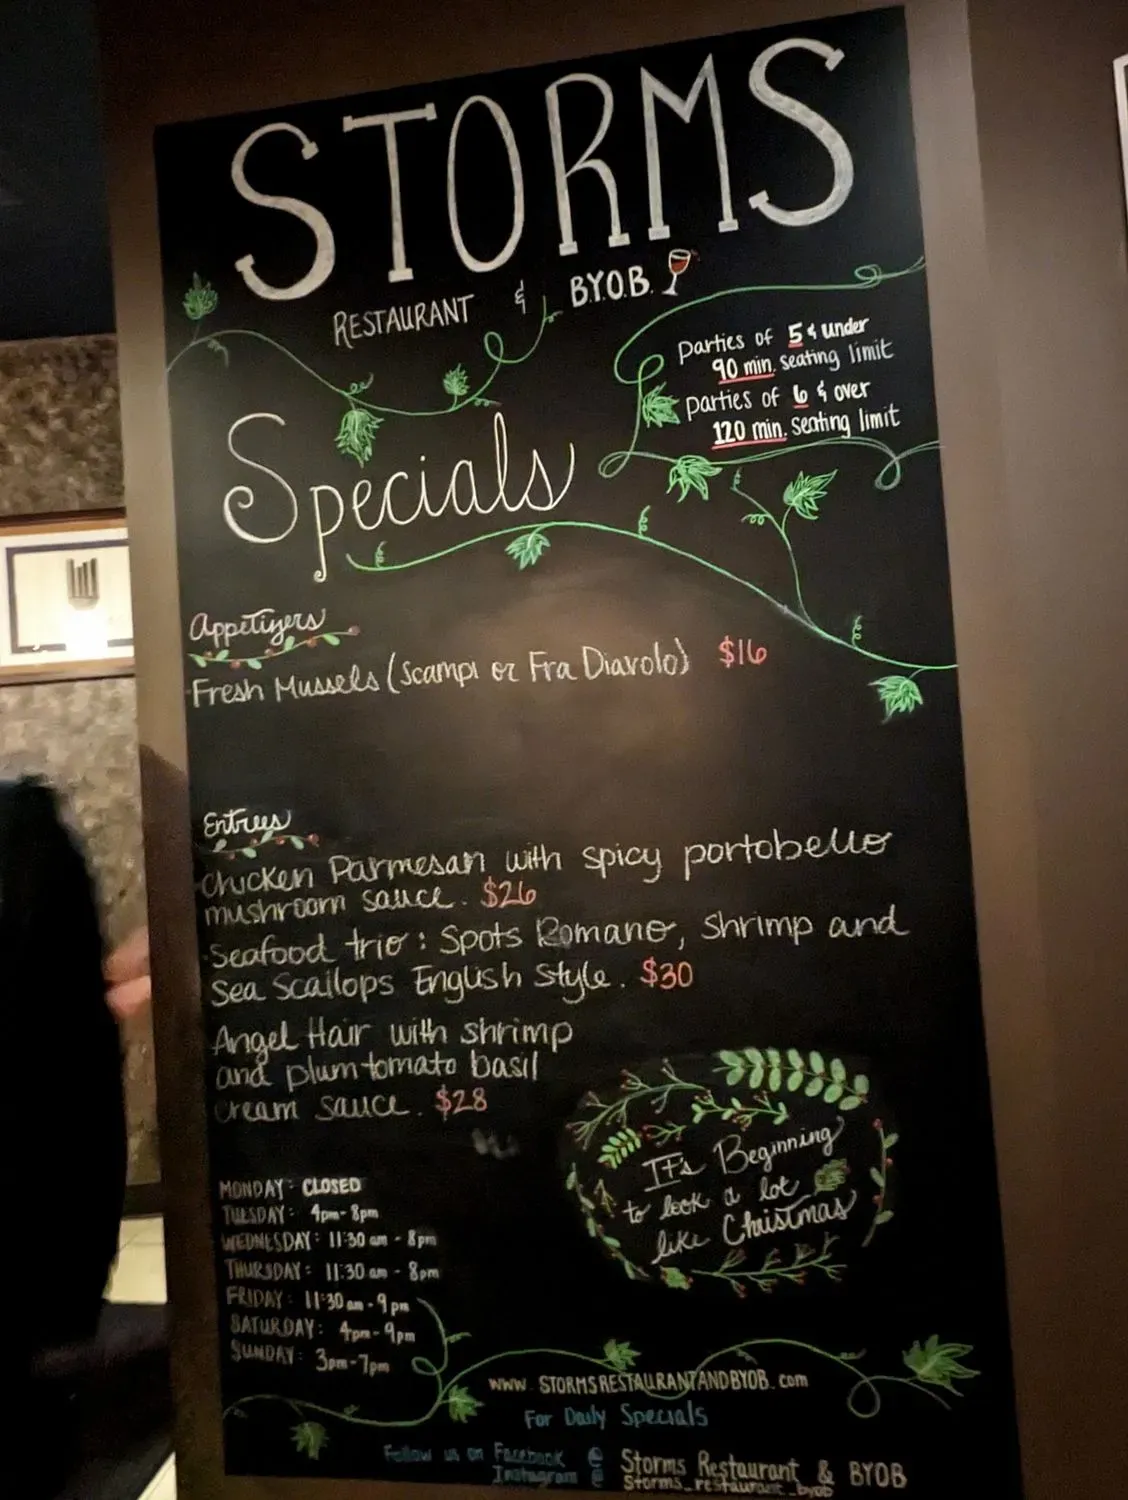 STORMS
RESTAURANT & B.Y.O.B.
parties of 5 & under
90 min. seating limit
parties of 6 & over
120 min. seating limit
Specials
Appetizers
Fresh Mussels (Scampi or Fra Diavolo) $16
Entrees
Chicken Parmesan with spicy portobello
mushroom sauce. $26
Seafood trio: Spots Romano, shrimp and
Sea Scallops English Style. $30
Angel Hair with shrimp
and plum tomato basil
cream sauce. $28
It's Beginning
to look a lot
like Christmas
MONDAY: CLOSED
TUESDAY: 4pm-8pm
WEDNESDAY: 11:30 am - 8pm
THURSDAY: 11:30 am - 8pm
FRIDAY: 11:30 am - 9pm
SATURDAY: 4pm-9pm
SUNDAY: 3pm-7pm
www.STORMSRESTAURANTANDBYOB.com
For Daily Specials
Follow us on Facebook @ Storms Restaurant & BYOB
Instagram @ Storms_restaurant_byob